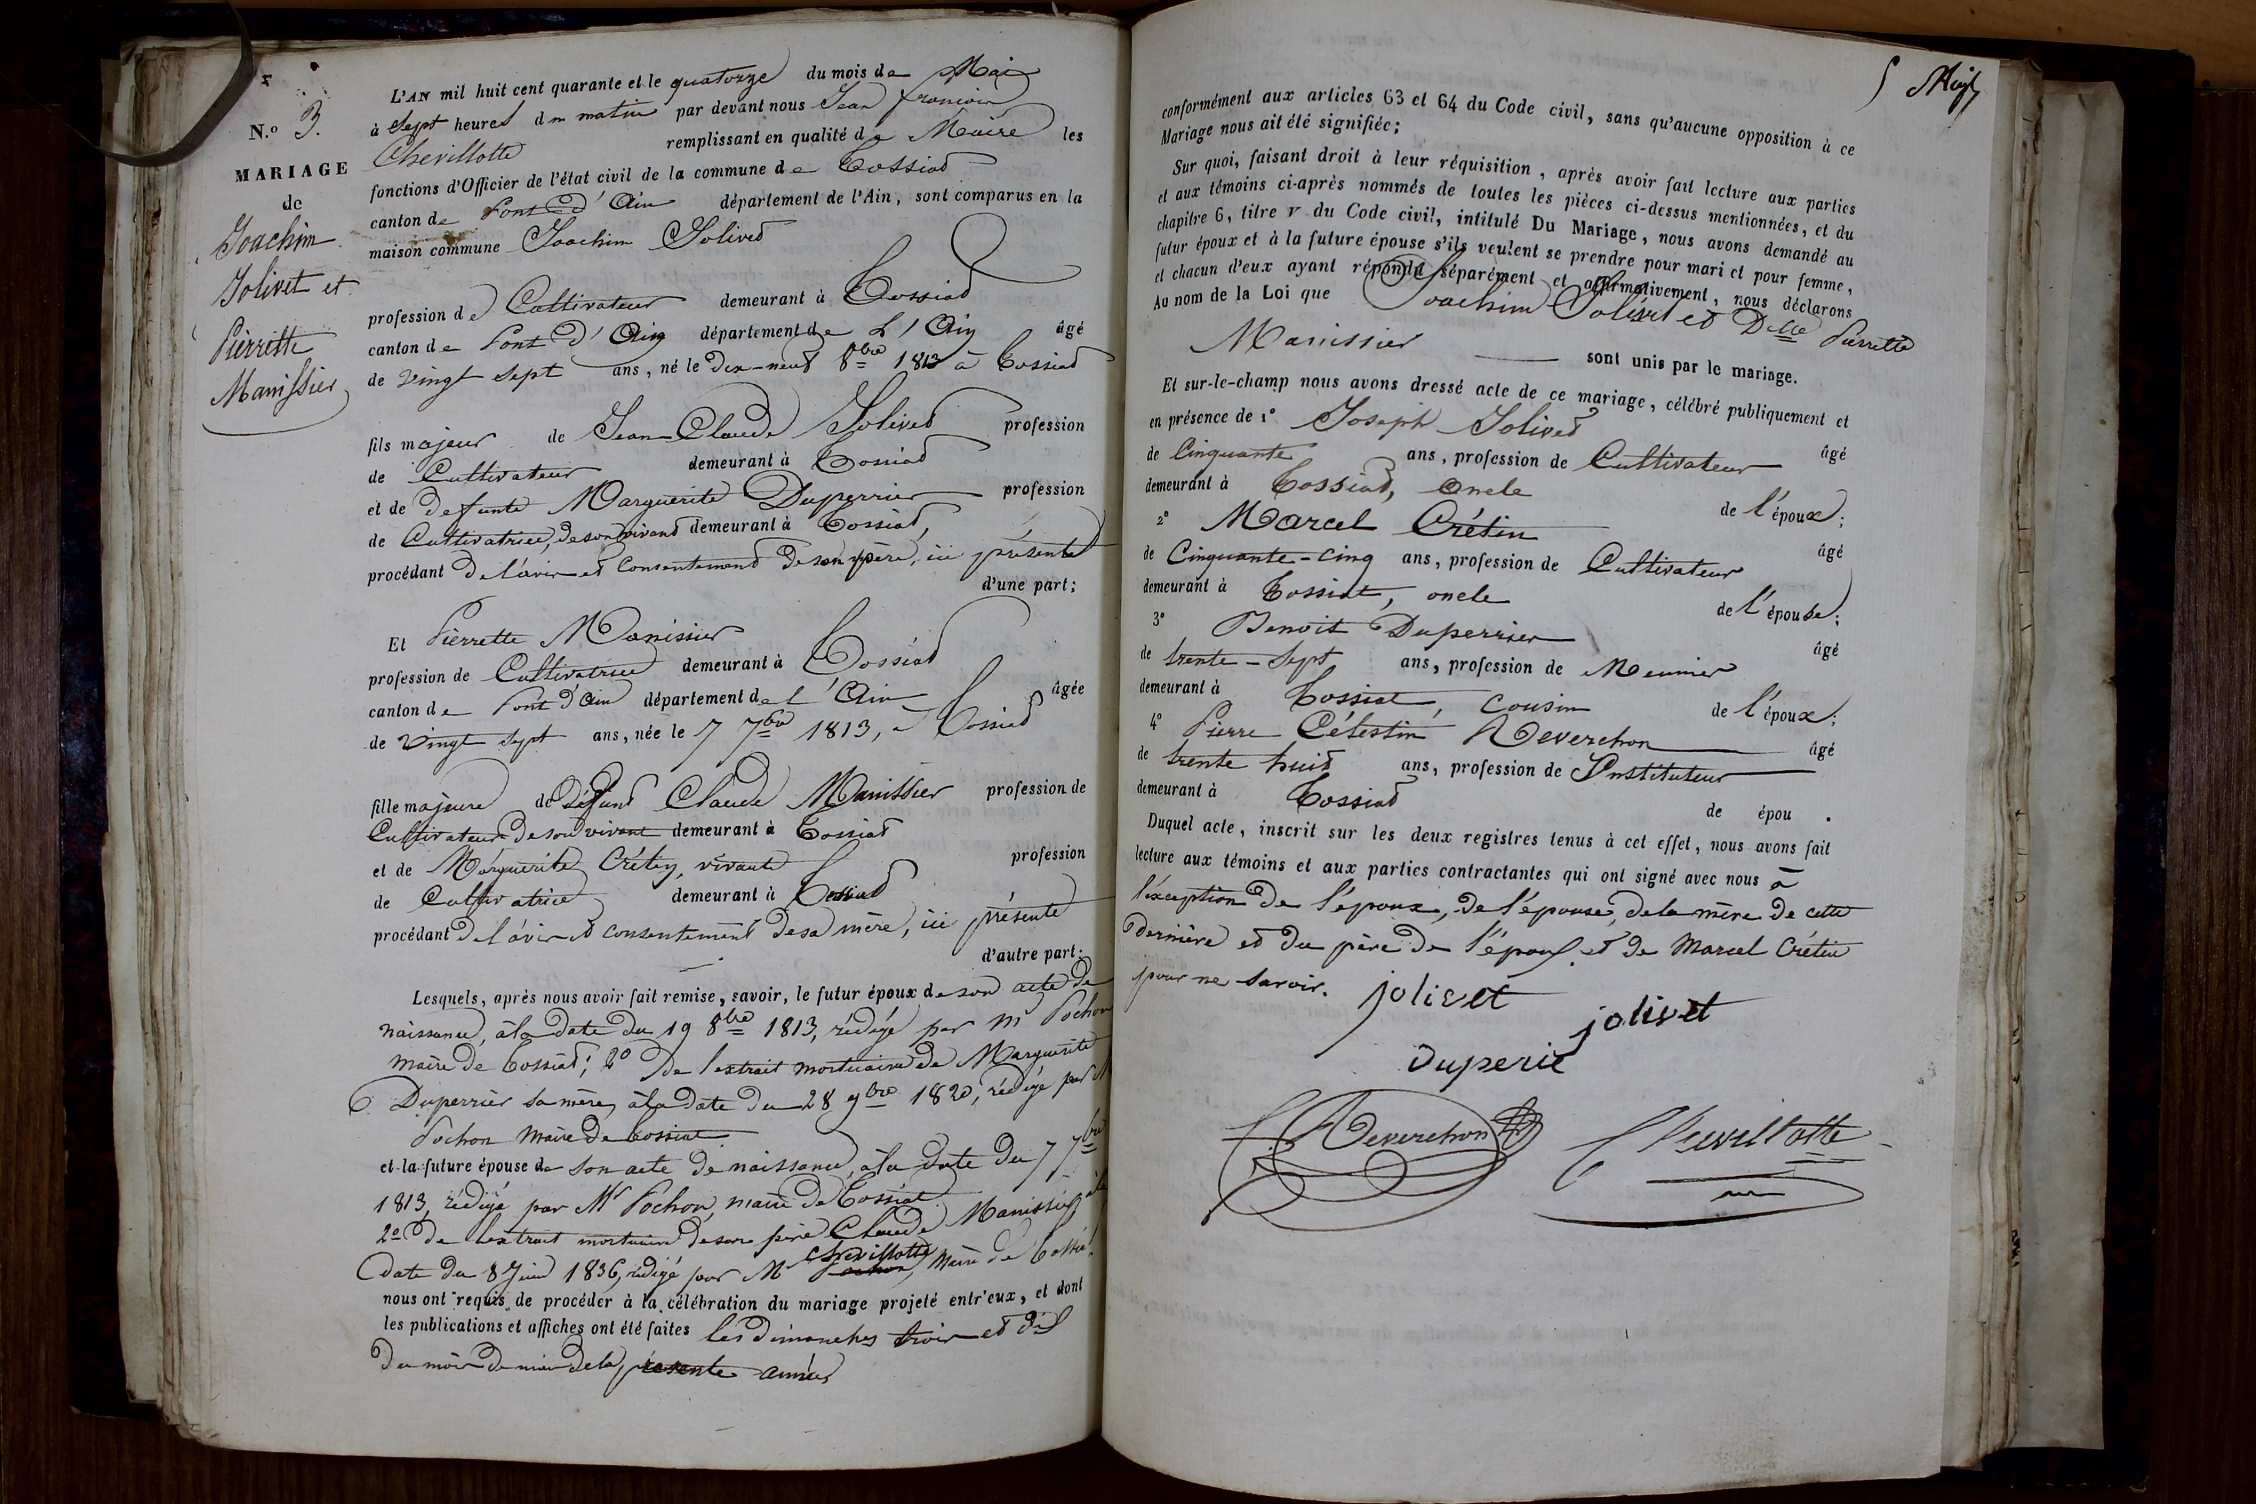 N.o 3.
MARIAGE
de
Joachim
Jolivet et
Pierrette
Manissier
L'AN mil huit cent quarante et le quatorze du mois de Mai
à sept heures du matin par devant nous Jean françois
Chevillotte remplissant en qualité de Maire les
fonctions d'Officier de l'état civil de la commune de Tossiat
canton de Pont d'Ain département de l'Ain, sont comparus en la
maison commune Joachim Jolivet
profession de Cultivateur demeurant à Tossiat
canton de Pont d'Ain département de L'Ain âgé
de vingt sept ans, né le dix-neuf 8bre 1813 à Tossiat
fils majeur de Jean-Claude Jolivet profession
de Cultivateur demeurant à Tossiat
et de defunte Marguerite Duperrier profession
de Cultivatrice, de son vivant demeurant à Tossiat,
procédant de l'avis et consentement de son père, ici présente
d'une part;
Et Pierrette Manissier
profession de Cultivatrice demeurant à Tossiat
canton de Pont d'Ain département de l'Ain âgée
de vingt sept ans, née le 7 7bre 1813, à Tossiat
fille majeure de défunt Claude Manissier profession de
Cultivateur de son vivant demeurant à Tossiat
et de Marguerite Crétin, vivante profession
de Cultivatrice demeurant à Tossiat
procédant de l'avis et consentement de sa mère, ici présente
d'autre part;
Lesquels, après nous avoir fait remise, savoir, le futur époux de son acte de
naissance, à la date du 19 8bre 1813, rédigé par Mr Pochon
maire de Tossiat; 2o de l'extrait mortuaire de Marguerite
Duperrier sa mère, à la date du 28 9bre 1820, rédigé par M
Pochon maire de Tossiat
et la future épouse de son acte de naissance, à la date du 7 7bre
1813, rédigé par Mr Pochon, maire de Tossiat
2o de l'extrait mortuaire de son père Claude Manissier à la
Chevillotte
date du 8 Juin 1836, rédigé par Mr Pochon, maire de Tossiat
nous ont requis de procéder à la célébration du mariage projeté entr'eux, et dont
les publications et affiches ont été faites les dimanches trois et dix
du mois de mai de la présente année
conformément aux articles 63 et 64 du Code civil, sans qu'aucune opposition à ce
Mariage nous ait été signifiée;
Sur quoi, faisant droit à leur réquisition, après avoir fait lecture aux parties
et aux témoins ci-après nommés de toutes les pièces ci-dessus mentionnées, et du
chapitre 6, titre v du Code civil, intitulé Du Mariage, nous avons demandé au
futur époux et à la future épouse s'ils veulent se prendre pour mari et pour femme,
et chacun d'eux ayant répondu séparément et affirmativement, nous déclarons
Au nom de la Loi que Joachim Jolivet et Delle Pierrette
Manissier sont unis par le mariage.
Et sur-le-champ nous avons dressé acte de ce mariage, célébré publiquement et
en présence de 1o Joseph Jolivet
âgé
de Cinquante ans, profession de Cultivateur
demeurant à Tossiat, oncle de l'époux;
2o Marcel Crétin âgé
de Cinquante-cinq ans, profession de Cultivateur
demeurant à Tossiat, oncle de l'épouse;
3o Benoit Duperrier âgé
de trente-sept ans, profession de Meunier
demeurant à Tossiat, cousin de l'époux;
4o Pierre Célestin Reverchon âgé
de trente huit ans, profession de Instituteur
demeurant à Tossiat de épou .
Duquel acte, inscrit sur les deux registres tenus à cet effet, nous avons fait
lecture aux témoins et aux parties contractantes qui ont signé avec nous à
l'exception de l'époux, de l'épouse, de la mère de cette
dernière et du père de l'époux et de Marcel Crétin
pour ne savoir.
jolivet
jolivet
Duperié
Reverchon
Chevillotte